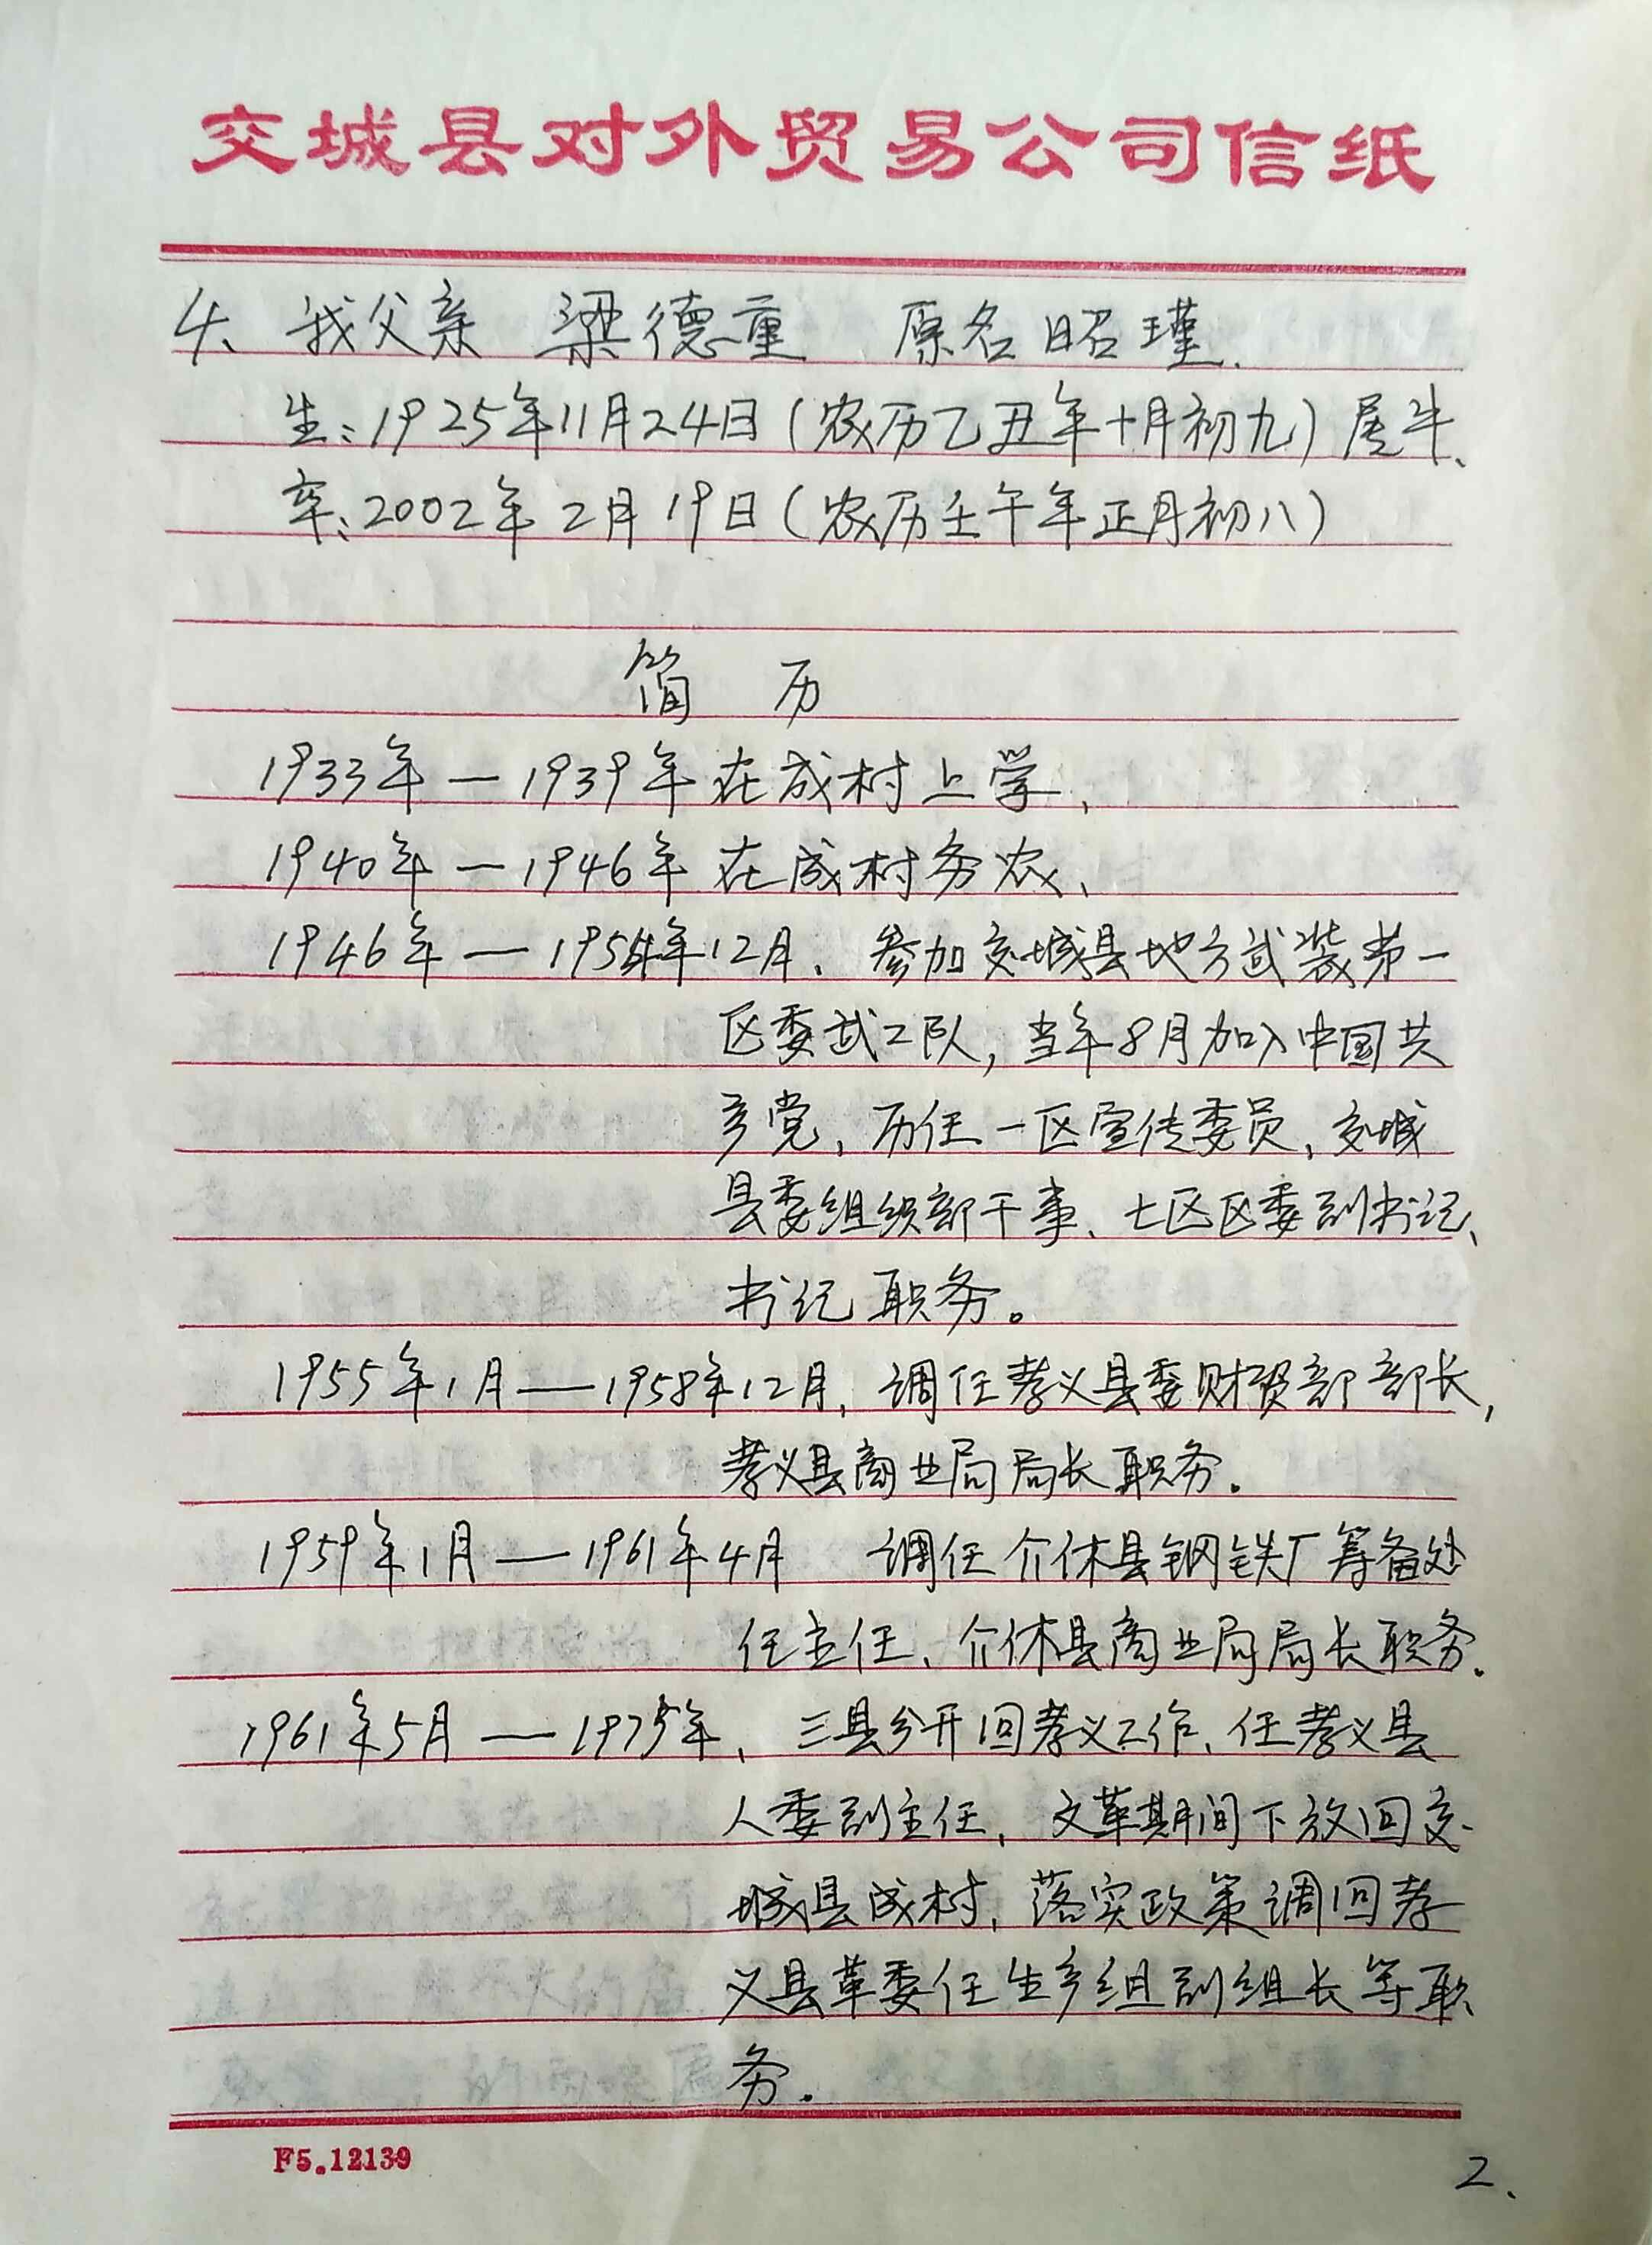 交城县对外贸易公司信纸
4、我父亲 梁德重 原名昭瑾.
生:1925年11月24日(农历乙丑年十月初九)属牛、
卒:2002年2月19日(农历壬午年正月初八)
简 历
1933年—1939年在成村上学、
1940年—1946年在成村务农、
1946年—1954年12月、参加交城县地方武装第一
区委武工队,当年8月加入中国共
产党,历任一区宣传委员,交城
县委组织部干事、七区区委副书记、
书记职务。
1955年1月——1958年12月,调任孝义县委财贸部部长,
孝义县商业局局长职务.
1959年1月——1961年4月 调任介休县钢铁厂筹备处
任主任、介休县商业局局长职务.
1961年5月——1975年、三县分开回孝义工作、任孝义县
人委副主任,文革期间下放回交
城县成村,落实政策调回孝
义县革委任生产组副组长等职
务.
F5.12139
2、